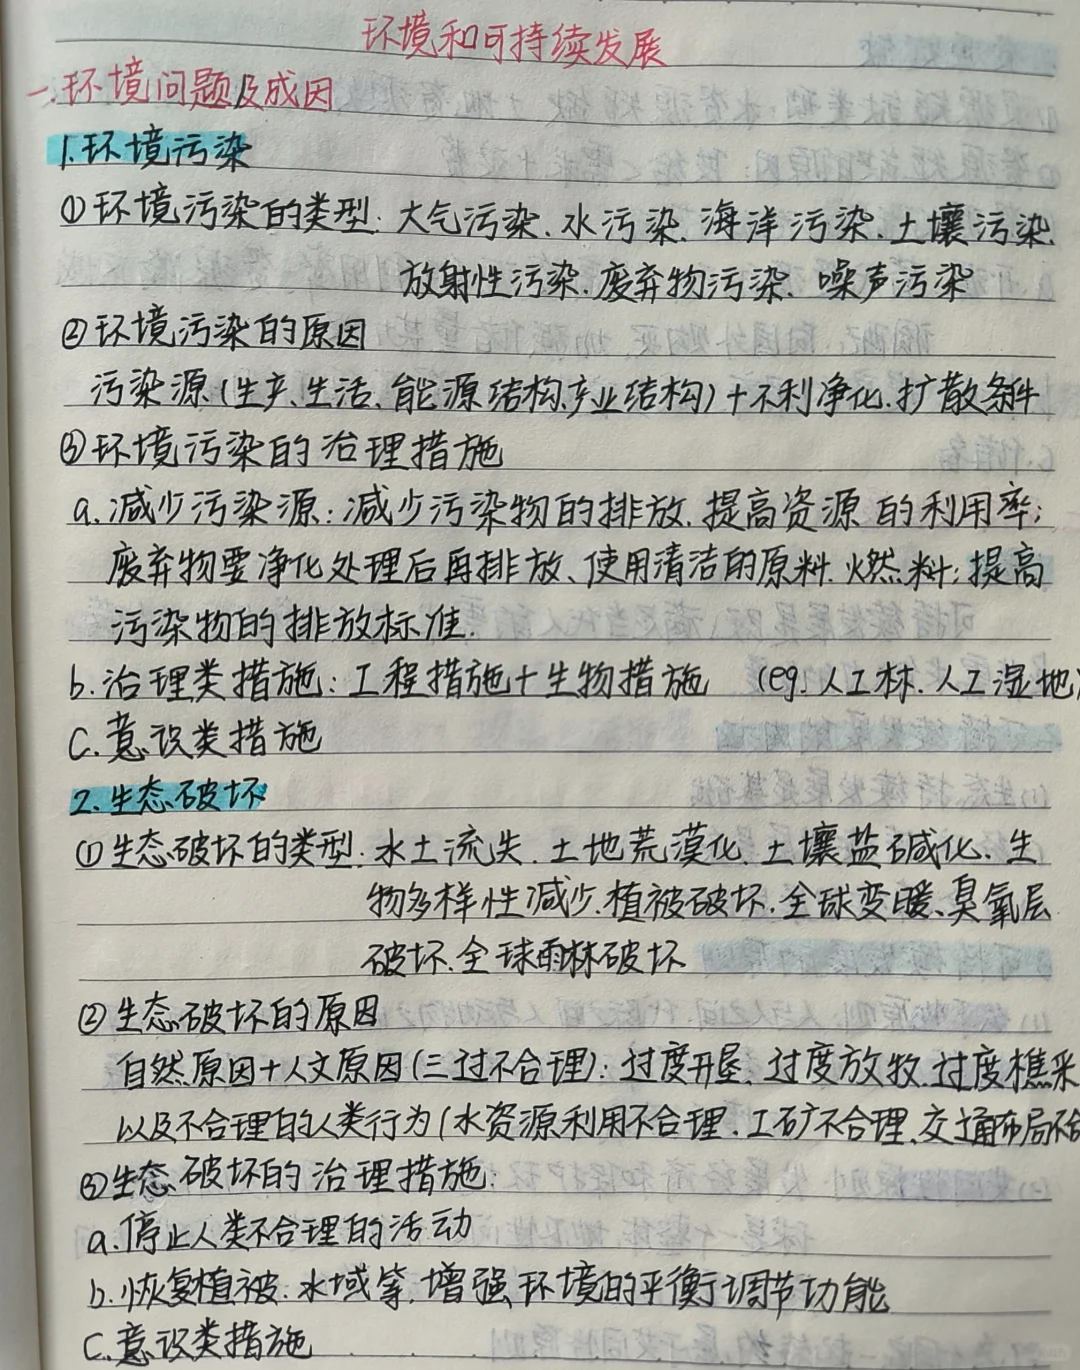 环境和可持续发展
一.环境问题及成因
1.环境污染
①环境污染的类型:大气污染、水污染、海洋污染、土壤污染、
放射性污染、废弃物污染、噪声污染
②环境污染的原因
污染源(生产、生活、能源结构、产业结构)+不利净化、扩散条件
③环境污染的治理措施
a.减少污染源:减少污染物的排放、提高资源的利用率;
废弃物要净化处理后再排放、使用清洁的原料、燃料;提高
污染物的排放标准.
b.治理类措施:工程措施+生物措施 (eg.人工林、人工湿地)
C.意识类措施
2.生态破坏
①生态破坏的类型:水土流失、土地荒漠化、土壤盐碱化、生
物多样性减少、植被破坏、全球变暖、臭氧层
破坏、全球雨林破坏
②生态破坏的原因
自然原因+人文原因(三过不合理):过度开垦、过度放牧、过度樵采
以及不合理的人类行为(水资源利用不合理、工矿不合理、交通布局不合
③生态破坏的治理措施:
a.停止人类不合理的活动
b.恢复植被、水域等,增强环境的平衡调节功能
C.意识类措施